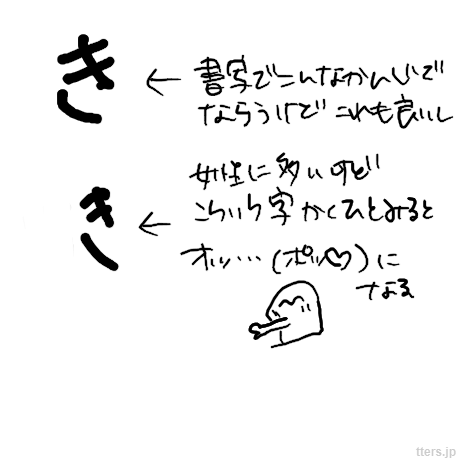 き
← 書写でこんなかんじで
ならうけど これも良いし
き
← 女性に多いけど
こういう字かくひとみると
オッ…(ポッ♡)に
なる
tters.jp